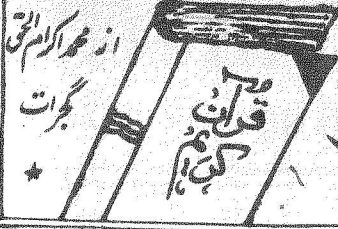 از محمد اکرام الحق
گجرات
قرآن
کریم